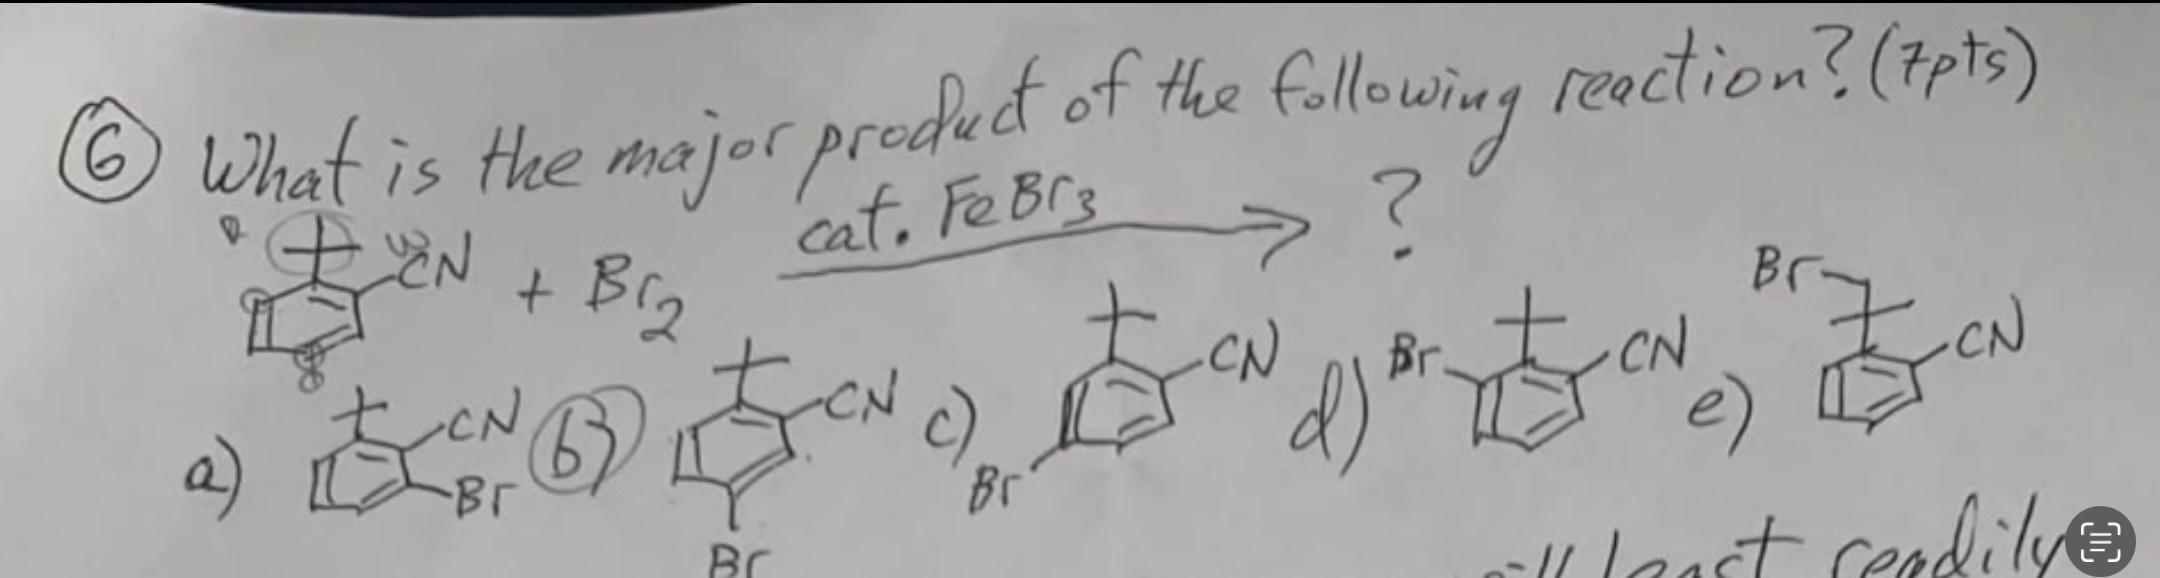 6 What is the major product of the following reaction? (7pts)
CN + Br2 cat. FeBr3 ?
a) CN Br b) CN Br c) CN Br d) Br CN e) Br CN
least readily